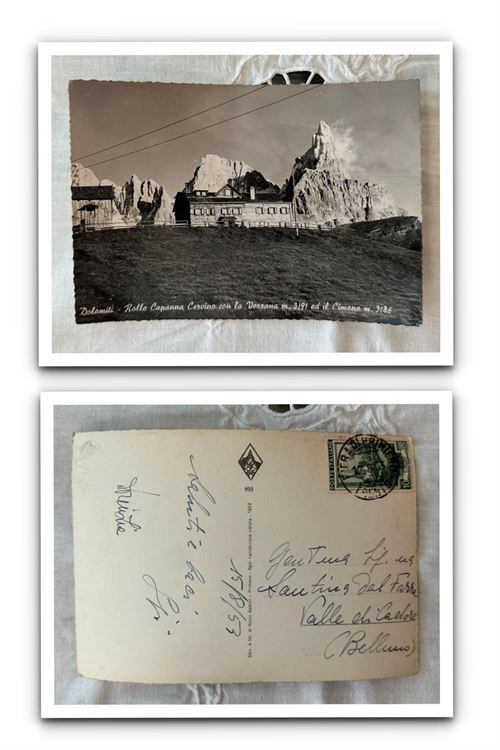 Dolomiti - Rolle Capanna Cervino con la Vezzana m. 3191 ed il Cimone m. 3186
POSTE ITALIANE
FIERA DI PRIMIERO
10
895
Saluti e baci
15/8/53
Gent.ma Sig.na
Santina Dal Farra
Valle di Cadore
(Belluno)